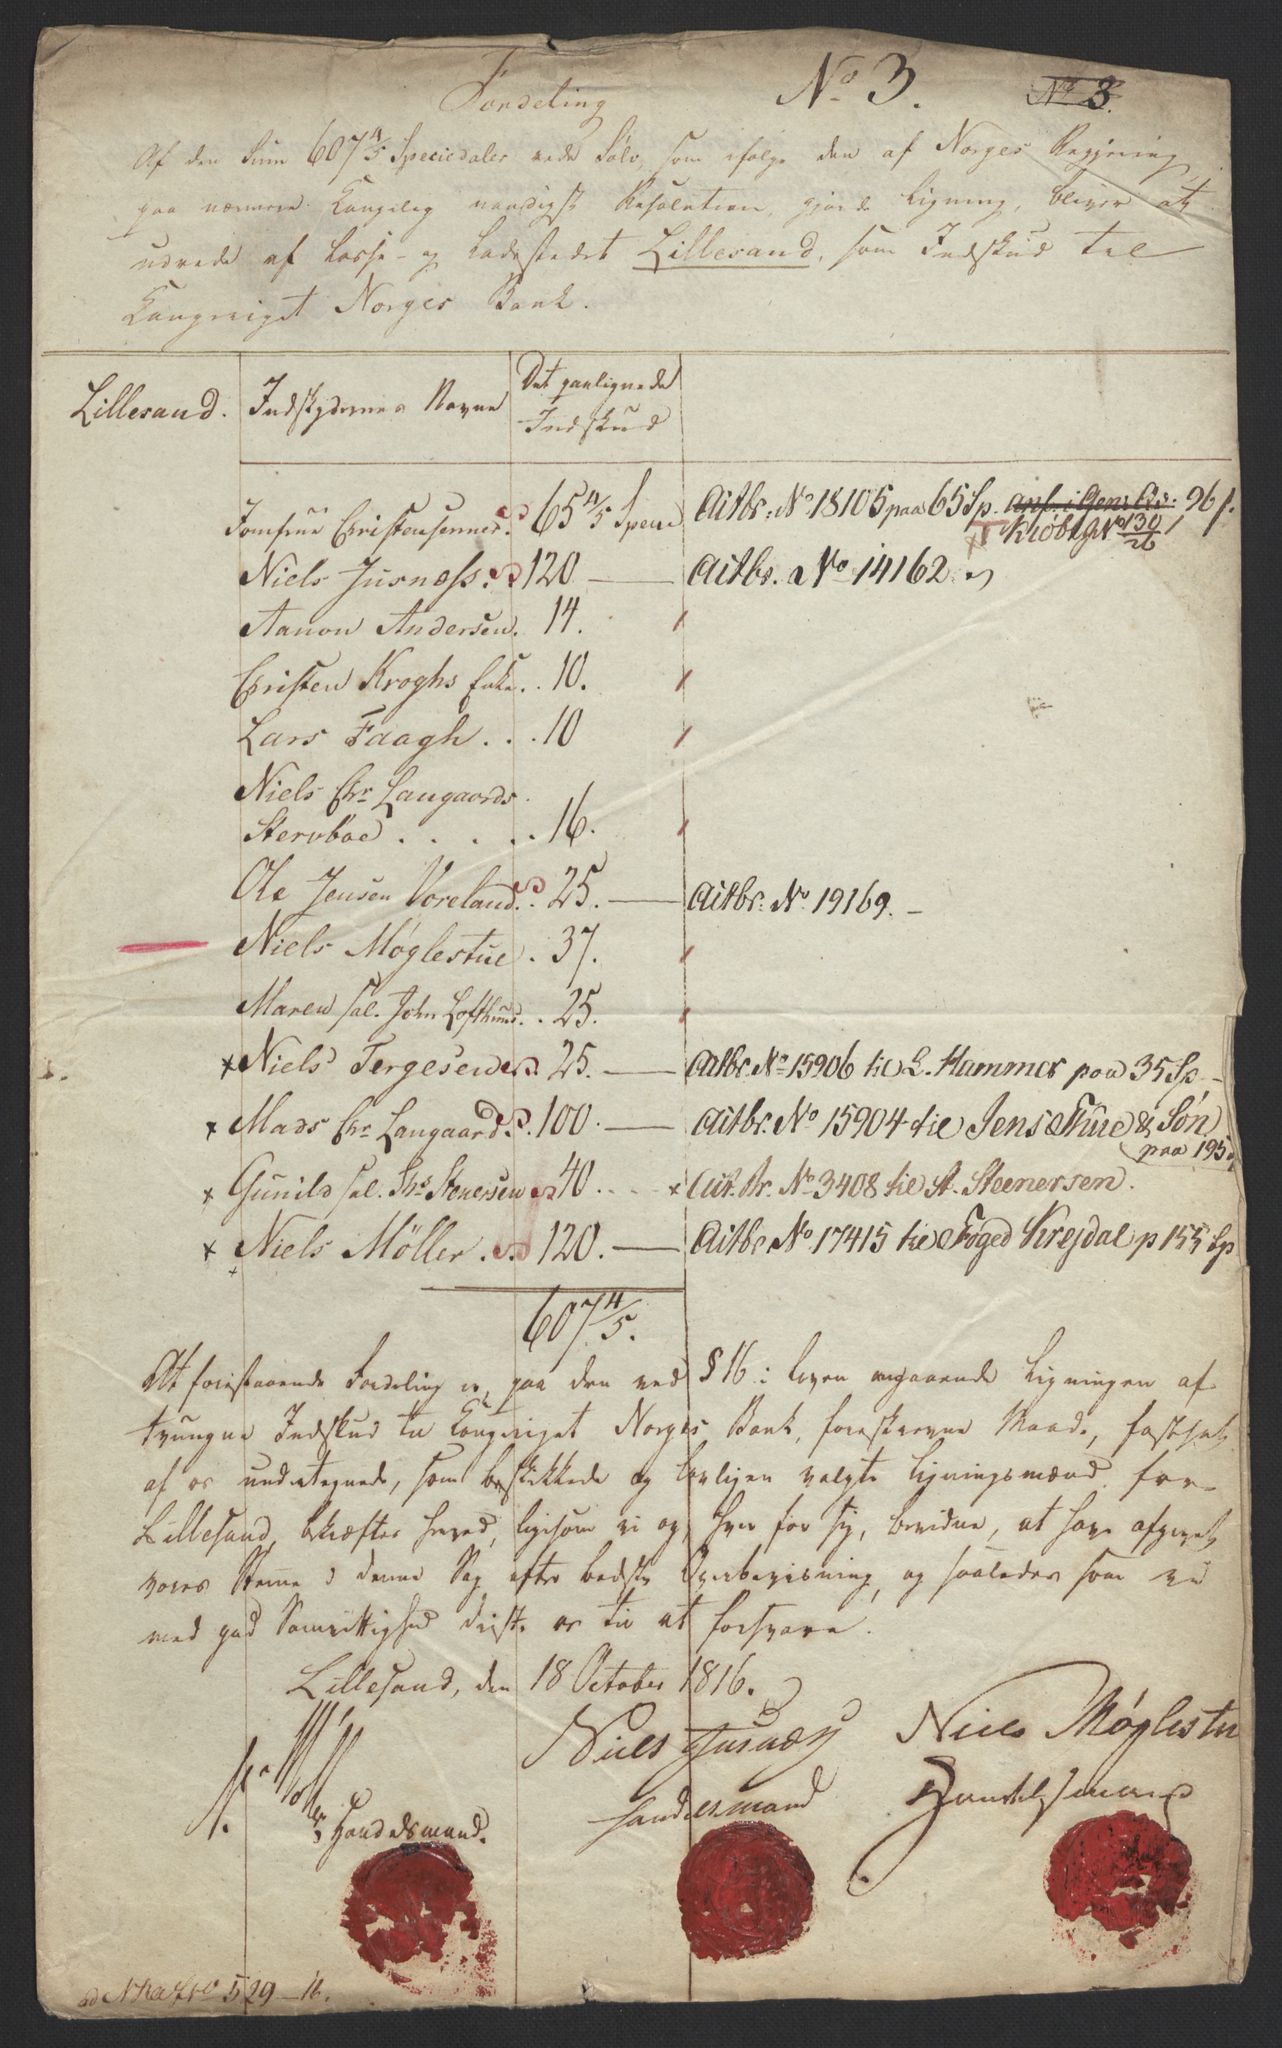 No 3.
No 3.
Fordeling
Af den Sum 607 4/5 Speciedaler rede Sølv, som ifølge den af Norges Regjering
paa nærmere Kongelig naadigst Resolution, gjorde Ligning, bliver at
udrede af Losse- og Ladestedet Lillesand, som Indskud til
Kongeriget Norges Bank.
Lillesand. Indskydernes Navne Det paalignede
Indskud
Jomfrue Christensennes. 65 4/5 Specie Qitbr. No 18105 paa 65 Sp. 96 s.
No 130/26
Niels Jusnæss. 120 Qitbr. No 14162.
Aanon Andersen. 14.
Christen Kroghs Enke. . 10.
Lars Faagh . . . 10
Niels Chr. Langaards
Stervboe . . . . . 16.
Ole Jensen Voreland. . 25. — Qitbr. No. 19169. –
Niels Møglestue . 37.
Maren sal. John Lofthuus. . 25.
x Niels Tergesen. 25. — Qitbr. No 15906 til L. Hammer paa 35 Sp. –
x Mads Chr. Langaard. . 100. — Qitbr. No 15904 til Jens Thue & Søn
paa 195
x Gunild sal. Ths Stenersen 40. . . . x Quit. Br. No 3408 til A. Steenersen.
x Niels Möller. . . 120. — Qitbr. No 17415 til Foged Krejdal p 155 Sp
607 4/5.
At forestaaende Fordeling er, paa den ved § 16 i Loven angaaende Ligningen af
tvungne Indskud til Kongeriget Norges Bank, foreskrevne Maade, fastsat
af os undertegnede, som beskikkede og lovligen valgte Ligningsmænd for
Lillesand, bekræftes herved, ligesom vi og, hver for sig, bevidne, at have afgivet
vores Stemme i denne Sag efter bedste Overbeviisning, og saaledes som vi
med god Samvittighed driste os til at forsvare.
Lillesand, den 18 October 1816.
N. Möller Niels Jusnæs Niels Møglestu
Handelsmand. Handelsmand Handelsmand
529 – 16.